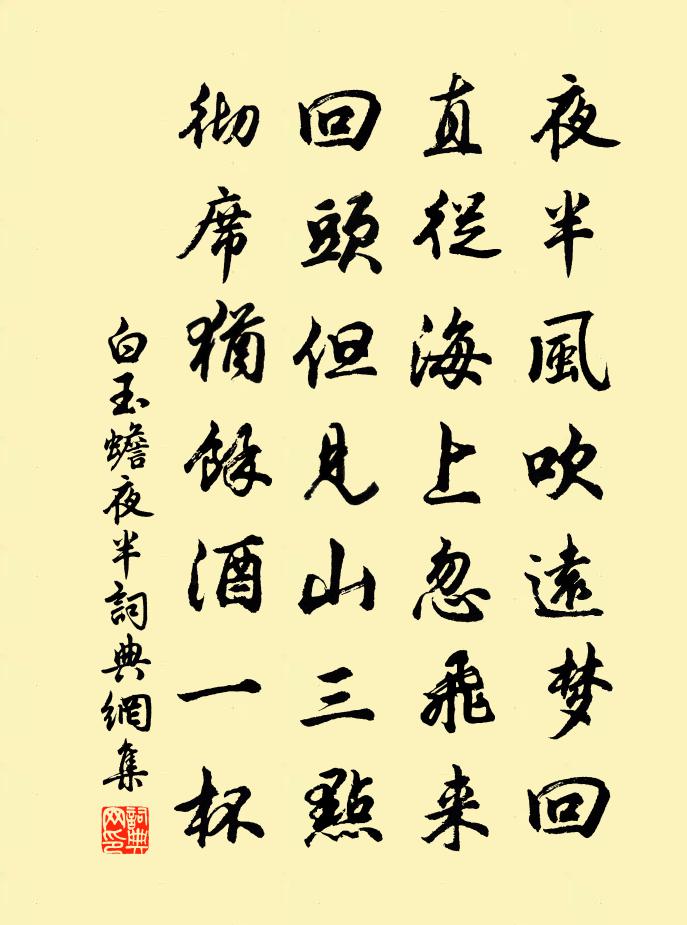 夜半風吹遠梦回
直從海上忽飛来
回頭但見山三點
彻席猶餘酒一杯
白玉蟾夜半詞典網集
詞典网印